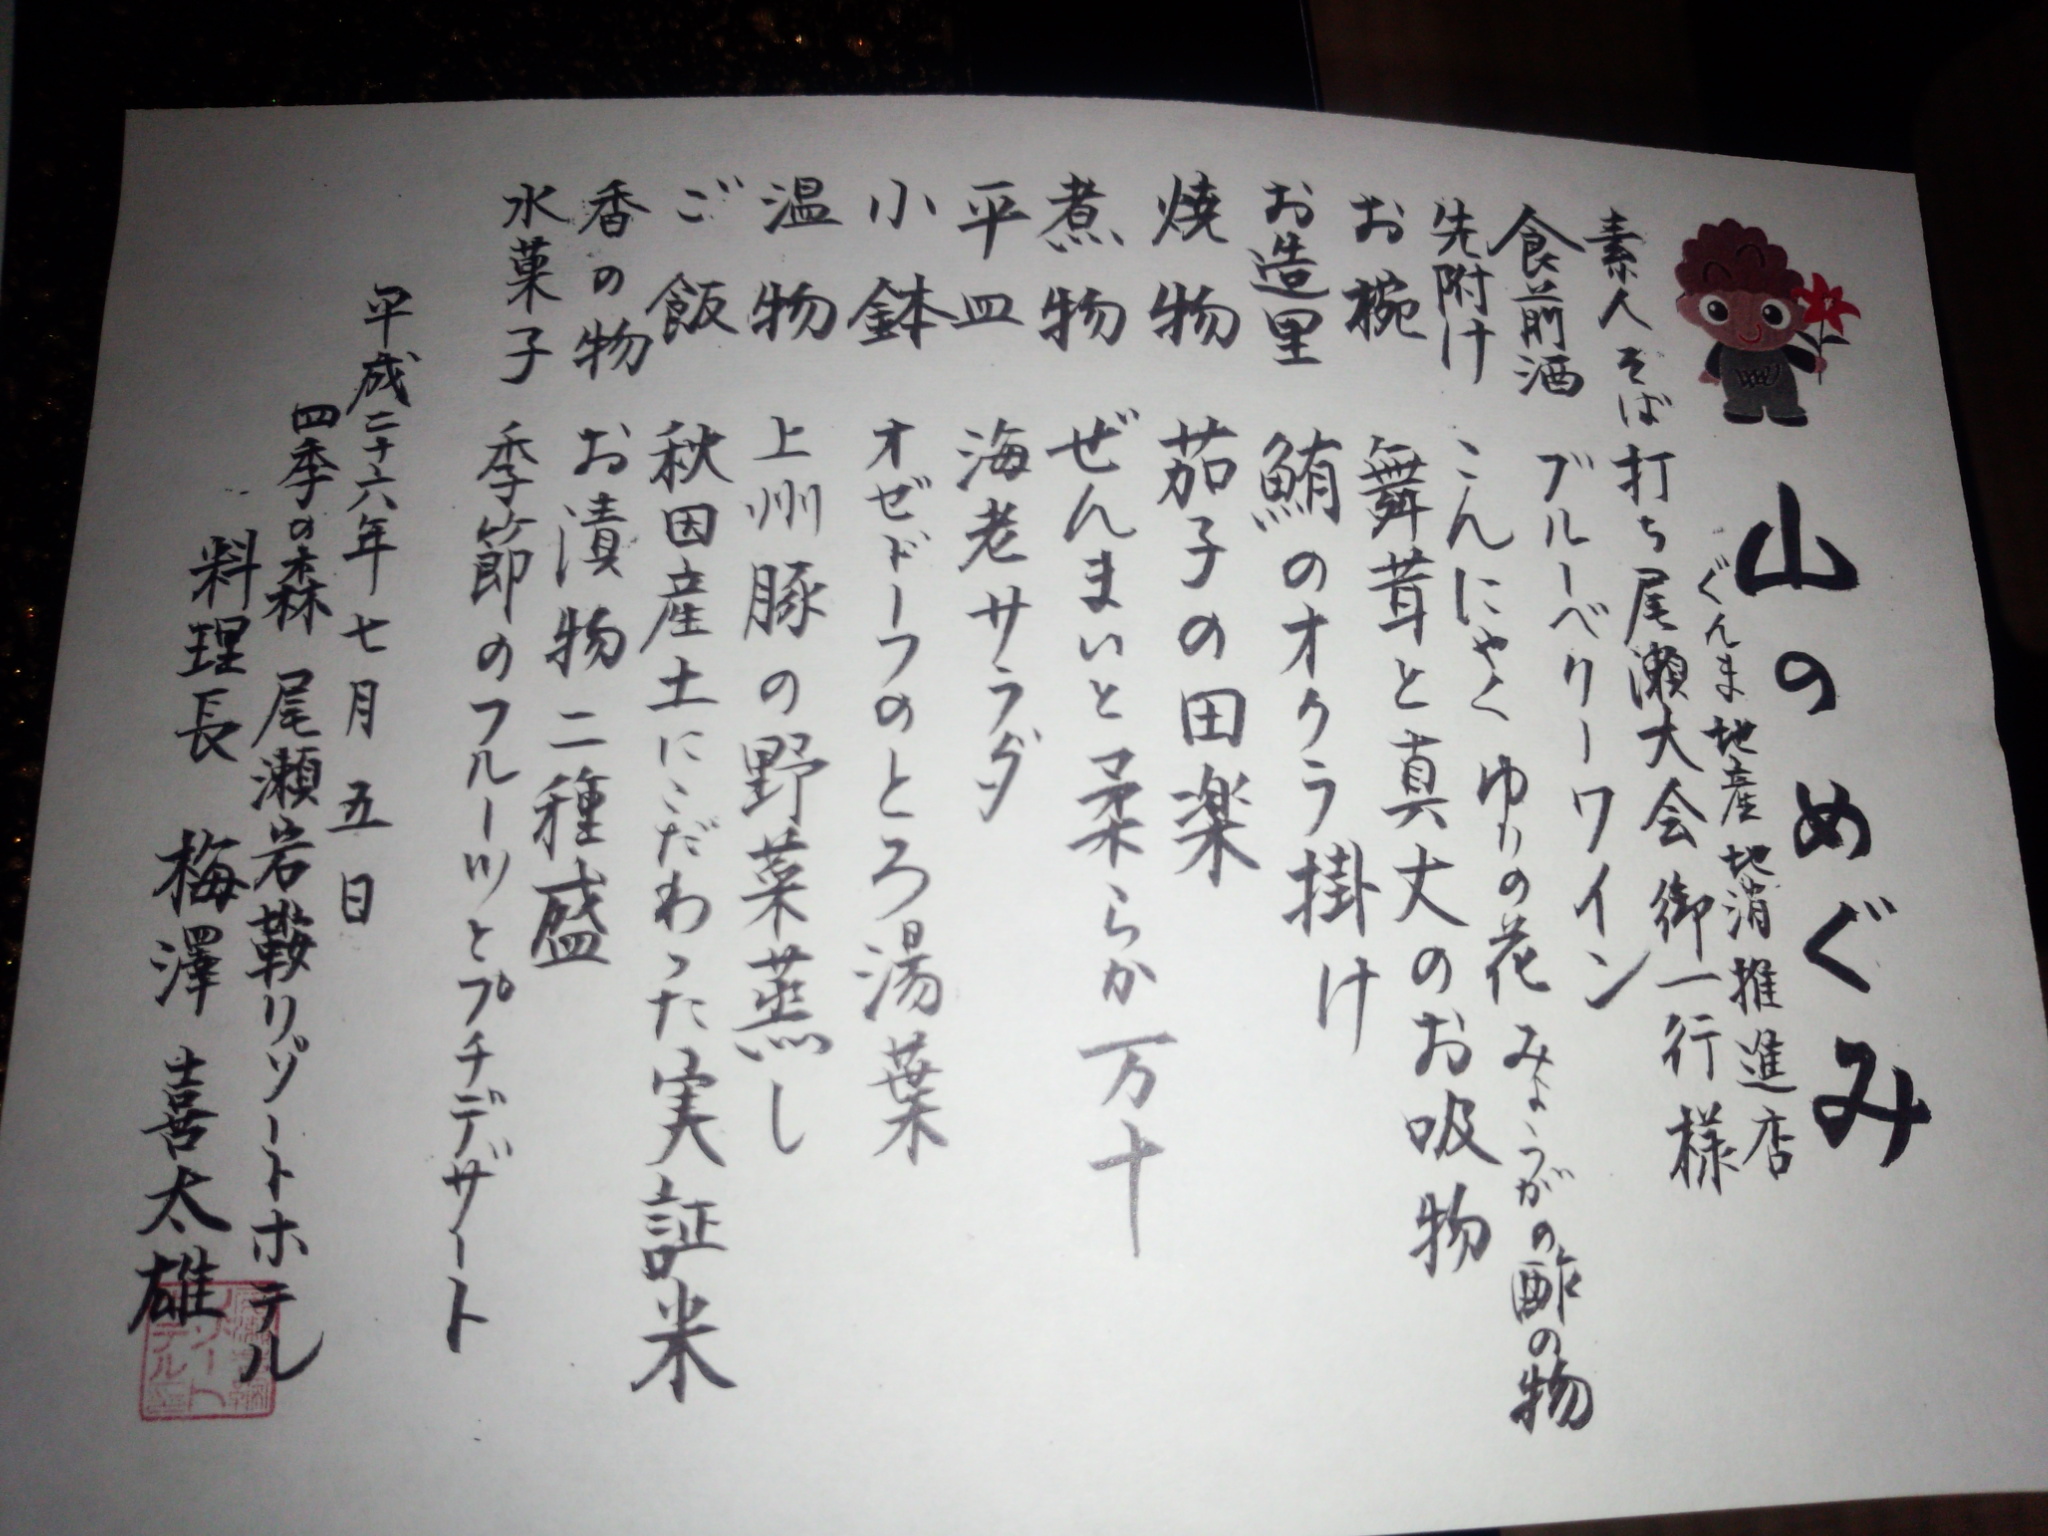 山のめぐみ
ぐんま地産地消推進店
素人そば打ち尾瀬大会御一行様
食前酒 ブルーベリーワイン
先附け こんにゃく ゆりの花 みょうがの酢の物
お椀 舞茸と真丈のお吸物
お造里 鮪のオクラ掛け
焼物 茄子の田楽
煮物 ぜんまいと柔らか万十
平皿 海老サラダ
小鉢 オゼドーフのとろ湯葉
温物 上州豚の野菜蒸し
ご飯 秋田産土にこだわった実証米
香の物 お漬物二種盛
水菓子 季節のフルーツとプチデザート
平成二十六年七月五日
四季の森 尾瀬岩鞍リゾートホテル
料理長 梅澤喜太雄